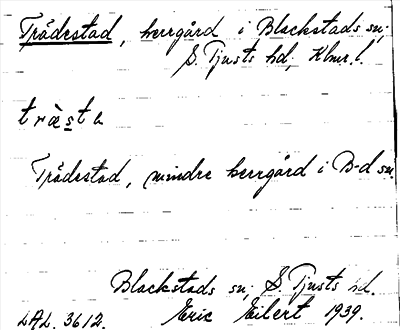 Trådestad, herrgård i Blackstads sn;
S. Tjusts hd; Klmr. l.
tràsta
Trådestad, mindre herrgård i B-d sn.
Blackstads sn; S. Tjusts hd.
LAL. 3612. Eric Eilert 1939.